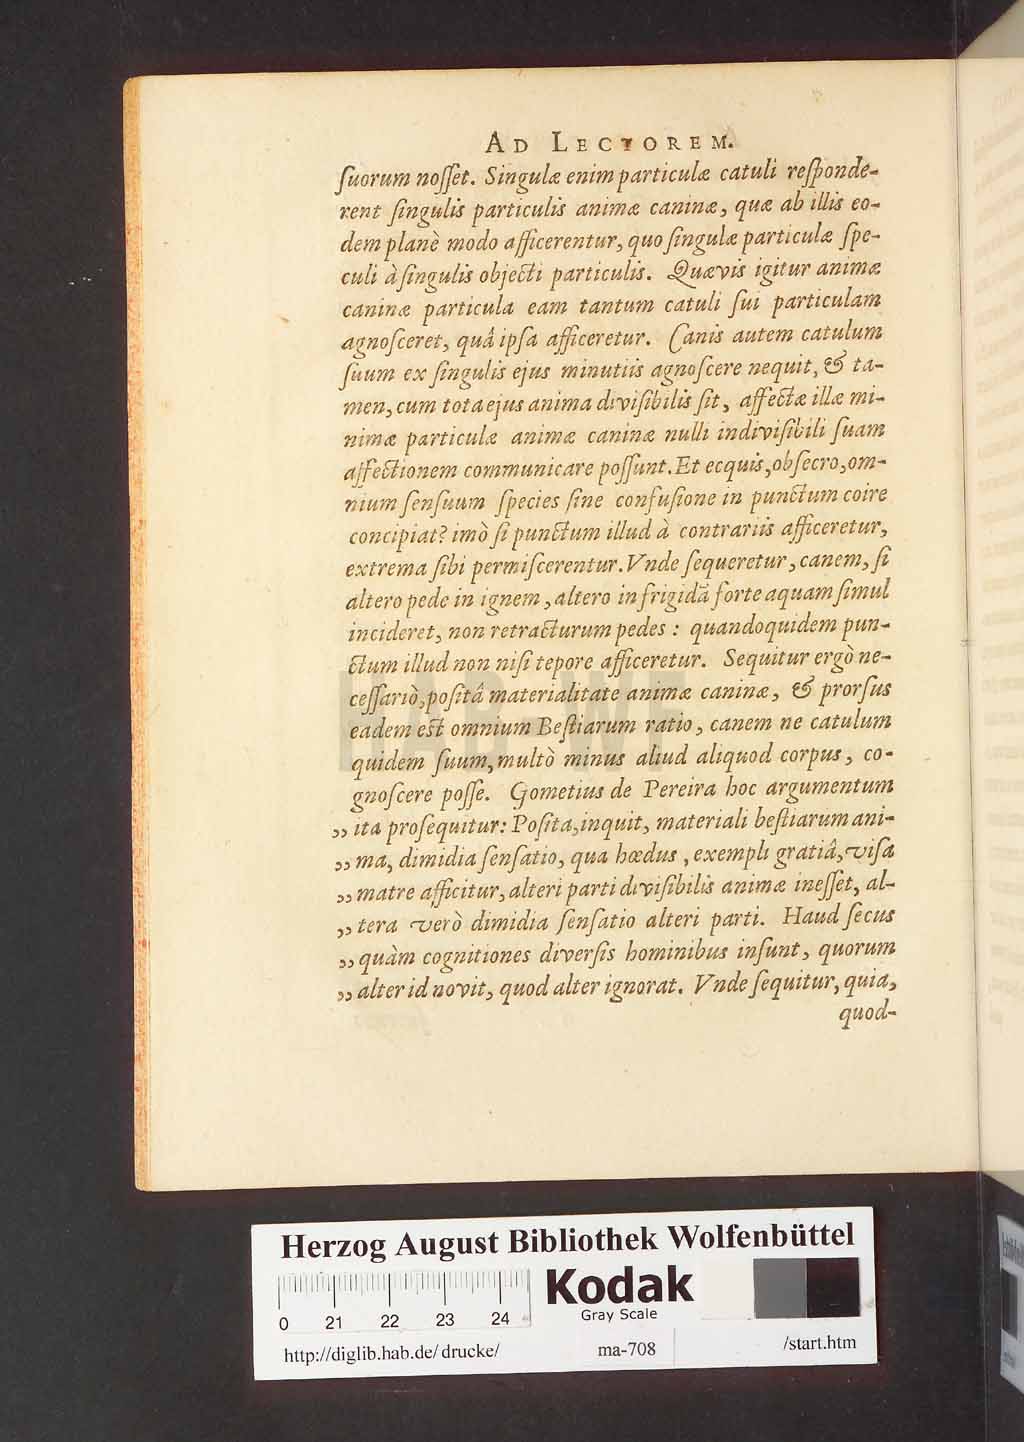 AD LECTOREM.
ſuorum noſſet. Singulæ enim particulæ catuli reſponde-
rent ſingulis particulis animæ caninæ, quæ ab illis eo-
dem planè modo afficerentur, quo ſingulæ particulæ ſpe-
culi à ſingulis objecti particulis. Quævis igitur animæ
caninæ particula eam tantum catuli ſui particulam
agnoſceret, quâ ipſa afficeretur. Canis autem catulum
ſuum ex ſingulis ejus minutiis agnoſcere nequit, & ta-
men, cum tota ejus anima diviſibilis ſit, affectæ illæ mi-
nimæ particulæ animæ caninæ nulli indiviſibili ſuam
affectionem communicare poſſunt. Et ecquis, obſecro, om-
nium ſenſuum ſpecies ſine confuſione in punctum coire
concipiat? imò ſi punctum illud à contrariis afficeretur,
extrema ſibi permiſcerentur. Vnde ſequeretur, canem, ſi
altero pede in ignem, altero in frigidã forte aquam ſimul
incideret, non retracturum pedes: quandoquidem pun-
ctum illud non niſi tepore afficeretur. Sequitur ergò ne-
ceſſariò, poſitâ materialitate animæ caninæ, & prorſus
eadem eſt omnium Beſtiarum ratio, canem ne catulum
quidem ſuum, multò minus aliud aliquod corpus, co-
gnoſcere poſſe. Gometius de Pereira hoc argumentum
„ ita proſequitur: Poſita, inquit, materiali beſtiarum ani-
„ ma, dimidia ſenſatio, qua hœdus, exempli gratiâ, viſa
„ matre afficitur, alteri parti diviſibilis animæ ineſſet, al-
„ tera verò dimidia ſenſatio alteri parti. Haud ſecus
„ quàm cognitiones diverſis hominibus inſunt, quorum
„ alter id novit, quod alter ignorat. Vnde ſequitur, quia,
quod-
Herzog August Bibliothek Wolfenbüttel
Kodak
Gray Scale
0 21 22 23 24
http://diglib.hab.de/drucke/ ma-708 /start.htm